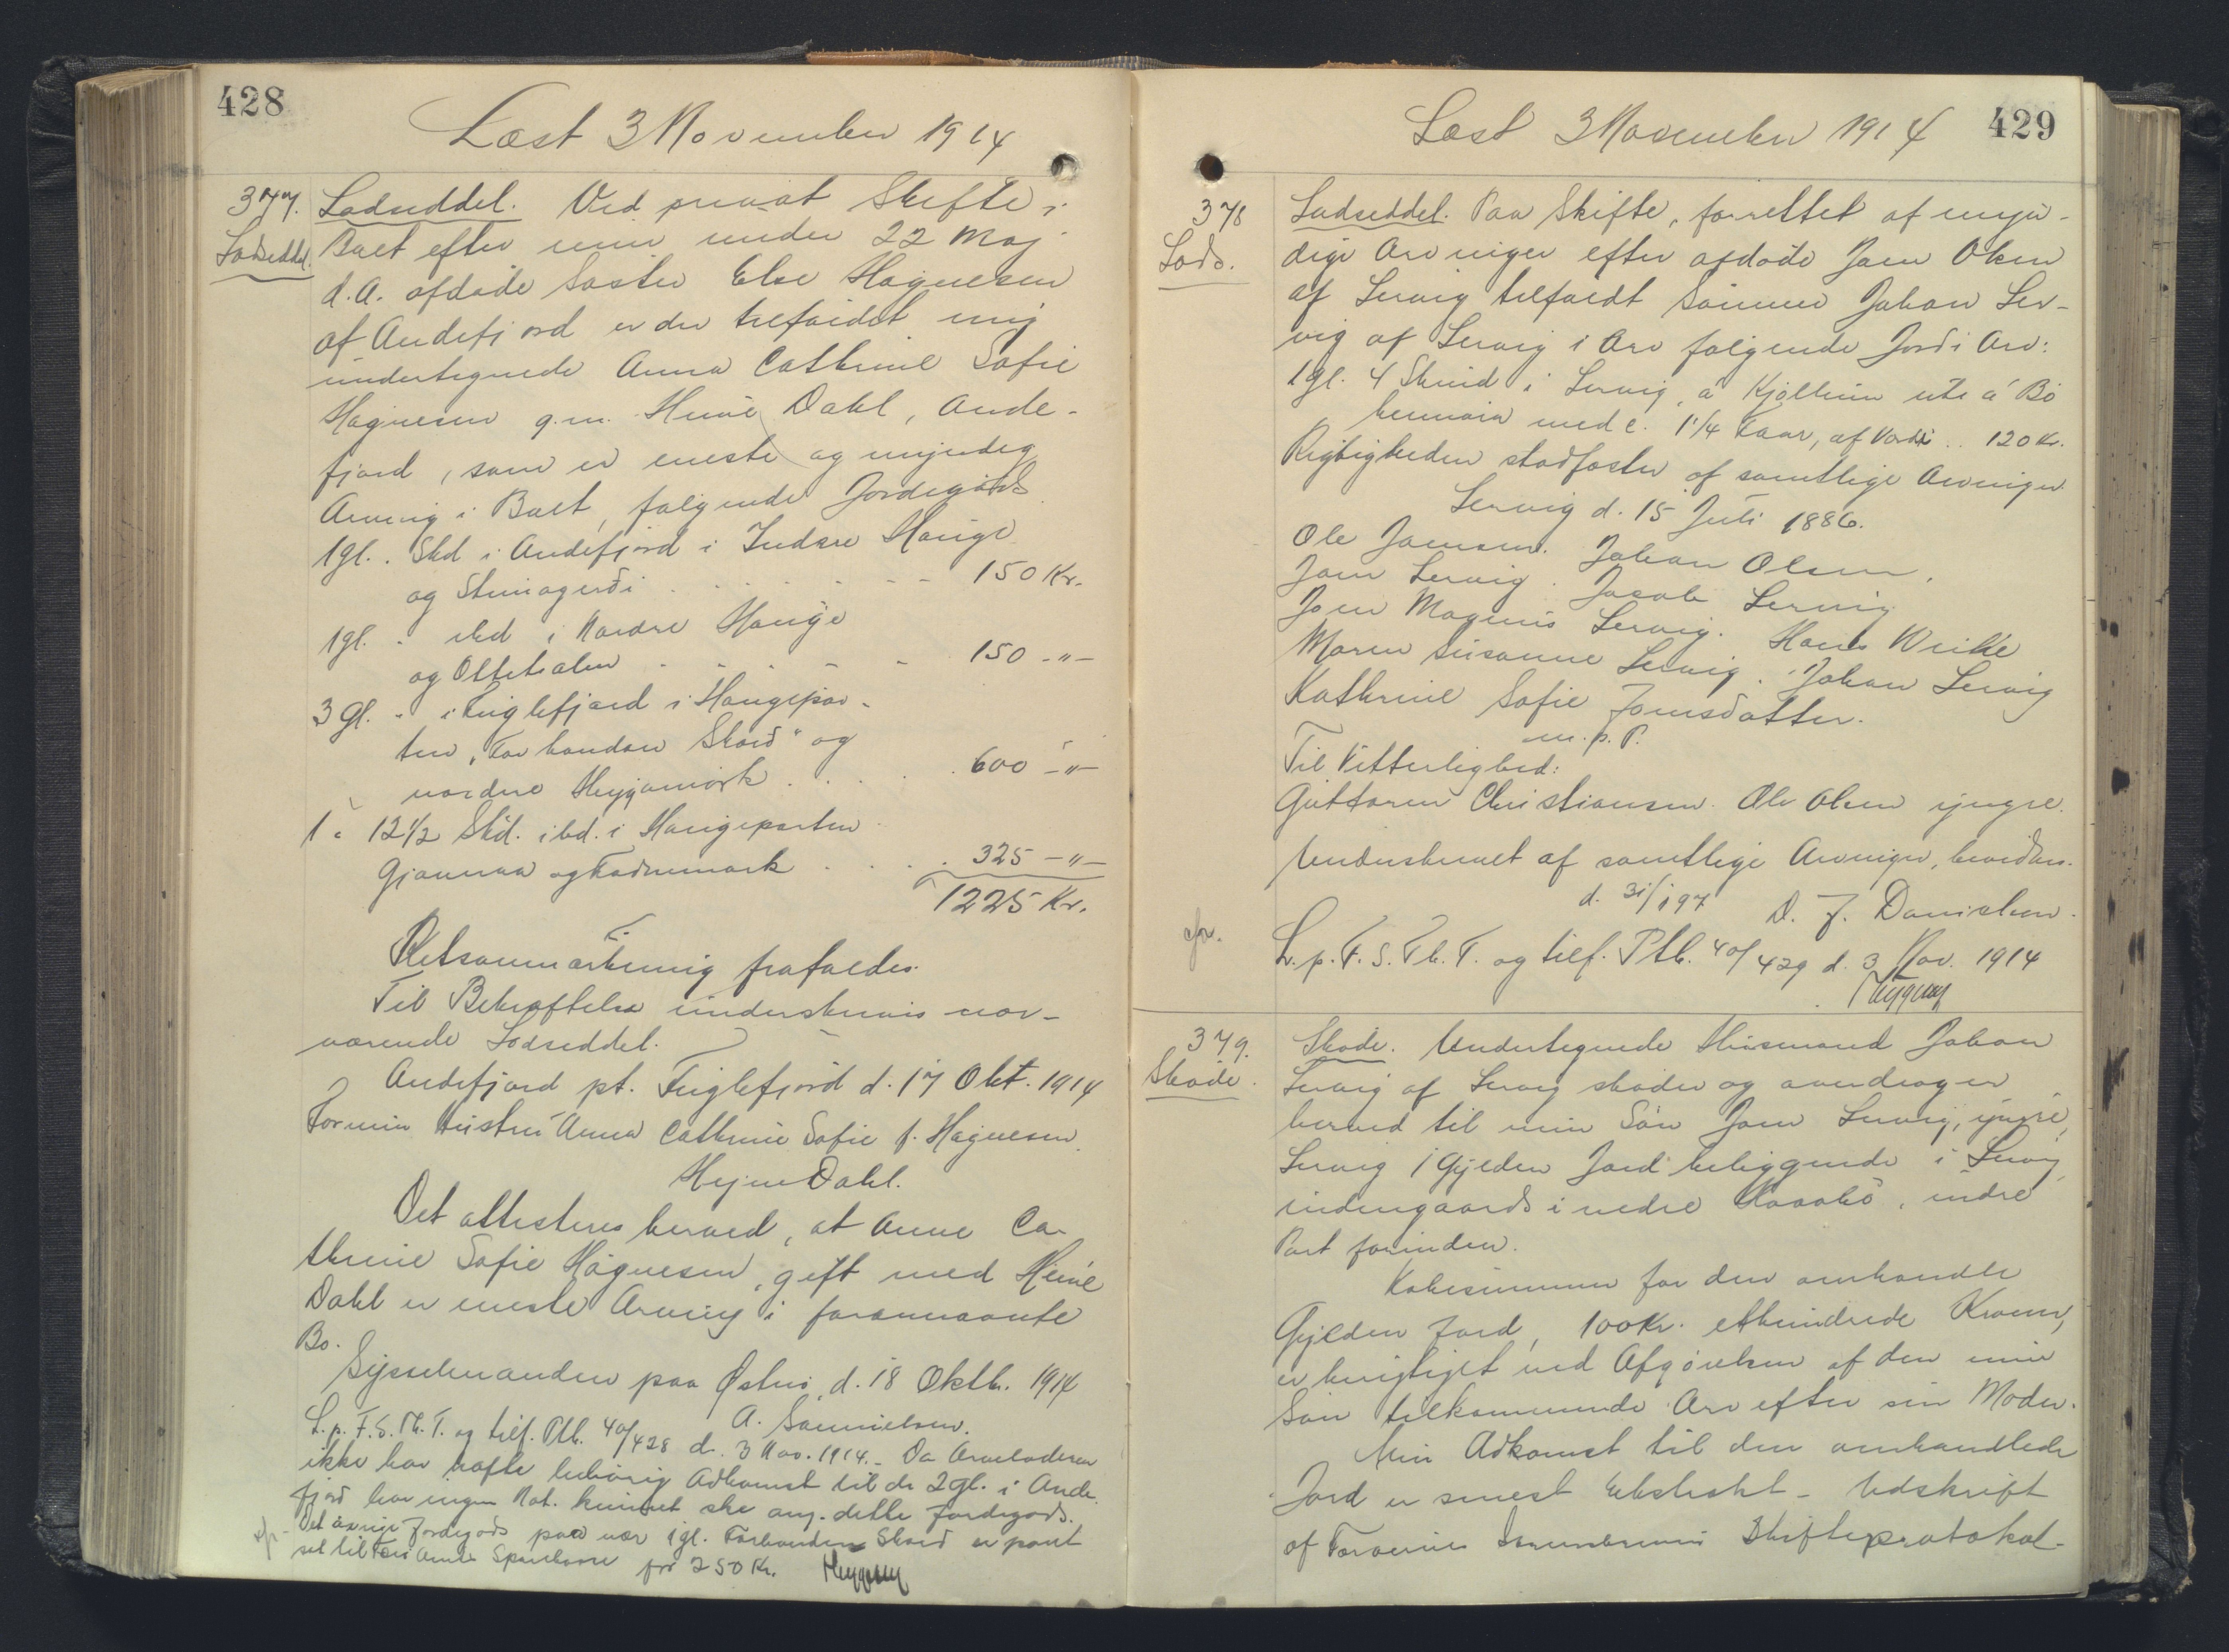 428
Læst 3 November 1914
377.
Lodseddel.
Lodseddel. Ved privat Skifte i
Boet efter min under 22 Maj
d.A. afdøde Søster Else Høgnesen
af Andefjord er der tilfaldet mig
undertegnede Anna Cathrine Sofie
Høgnesen g.m. Heine Dahl, Ande-
fjord, som er eneste og myndig
Arving i Boet, følgende Jordegods
1 gl. . Skd i Andefjord i Indare Hauge
og Steinagerdi . . . . . 150 Kr.
1 gl. - skd i Nordre Hauge
og Ottehalen - - - - - 150 -"-
3 gl. - i Fuglefjord i Haugepar-
ten, "For handan Skard" og
nordre Heygamørk . . . . . 600 -"-
1 " 12 1/2 Skd. ibd. i Haugeparten
Gjannaa og . . . . 325 -"-
1225 Kr.
Retsanmærkning frafaldes.
Til Bekræftelse underskrives nær-
værende Lodseddel.
Andefjord pt. Fuglefjord d. 17 Okt. 1914
For min Hustru Anna Cathrine Sofie f. Høgnesen.
Hejne Dahl.
Det attesteres herved, at Anne Ca-
thrine Sofie Høgnesen, gift med Heine
Dahl er eneste Arving i forannævnte
Bo.
Sysselmanden paa Østerø, d. 18 Oktb. 1914
A. Samuelsen.
L.p.F.S.Th.T. og tilf. Ptk. 40/428 d. 3 Nov. 1914. - Da Arveladeren
ikke har havt behørig Adkomst til de 2 gl. i Ande-
fjord har ingen Not. kunnet ske ang. dette Jordegods.
Det øvrige Jordegods paa nær 1 gl. Forhandan Skard er pant-
sat til Færø Amts Sparekasse for 250 Kr.
429
Læst 3 November 1914
378
Lods.
Lodseddel. Paa Skifte, forrettet af myn-
dige Arvinger efter afdøde Joen Olsen
af Lervig tilfaldt Sønnen Johan Ler-
vig af Lervig i Arv følgende Jord i Arv:
1 gl. 4 Skind i Lervig, á Kjølhun ute á Bø
med c. 1 1/4 Faar, af Værdi .. 120 Kr.
Rigtigheden stadfæster af samtlige Arvinger
Lervig d. 15 Juli 1886.
Ole Joensen. Johan Olsen.
Joen Lervig. Jacob Lervig
Joen Magnus Lervig. Hans Weihe
Maren Susanne Lervig. Johan Lervig
Kathrine Sofie Joensdatter.
m.p.P.
Til Vitterlighed:
Guttorm Christiansen. Ole Olsen yngre.
Underskrevet af samtlige Arvinger, bevidnes.
d. 31/1 97 D. J. Danielsen.
cfr.
L.p.F.S.Th.T. og tilf. Ptk. 40/429 d. 3 Nov. 1914
379.
Skøde.
Skøde. Undertegnede Husmand Johan
Lervig af Lervig skøder og overdrager
herved til min Søn Joen Lervig, yngre,
Lervig 1 Gylden Jord beliggende i Lervig
indengaards i nedre , indre
Part forinden.
Købesummen for den omhandlede
Gylden Jord, 100 Kr. ethundrede Kroner,
er berigtiget ved Afgørelsen af den min
Søn tilkommende Arv efter sin Moder.
Min Adkomst til den omhandlede
Jord er senest Ekstrakt-Udskrift
af Færøernes Sorenskriveris Skifteprotokol-